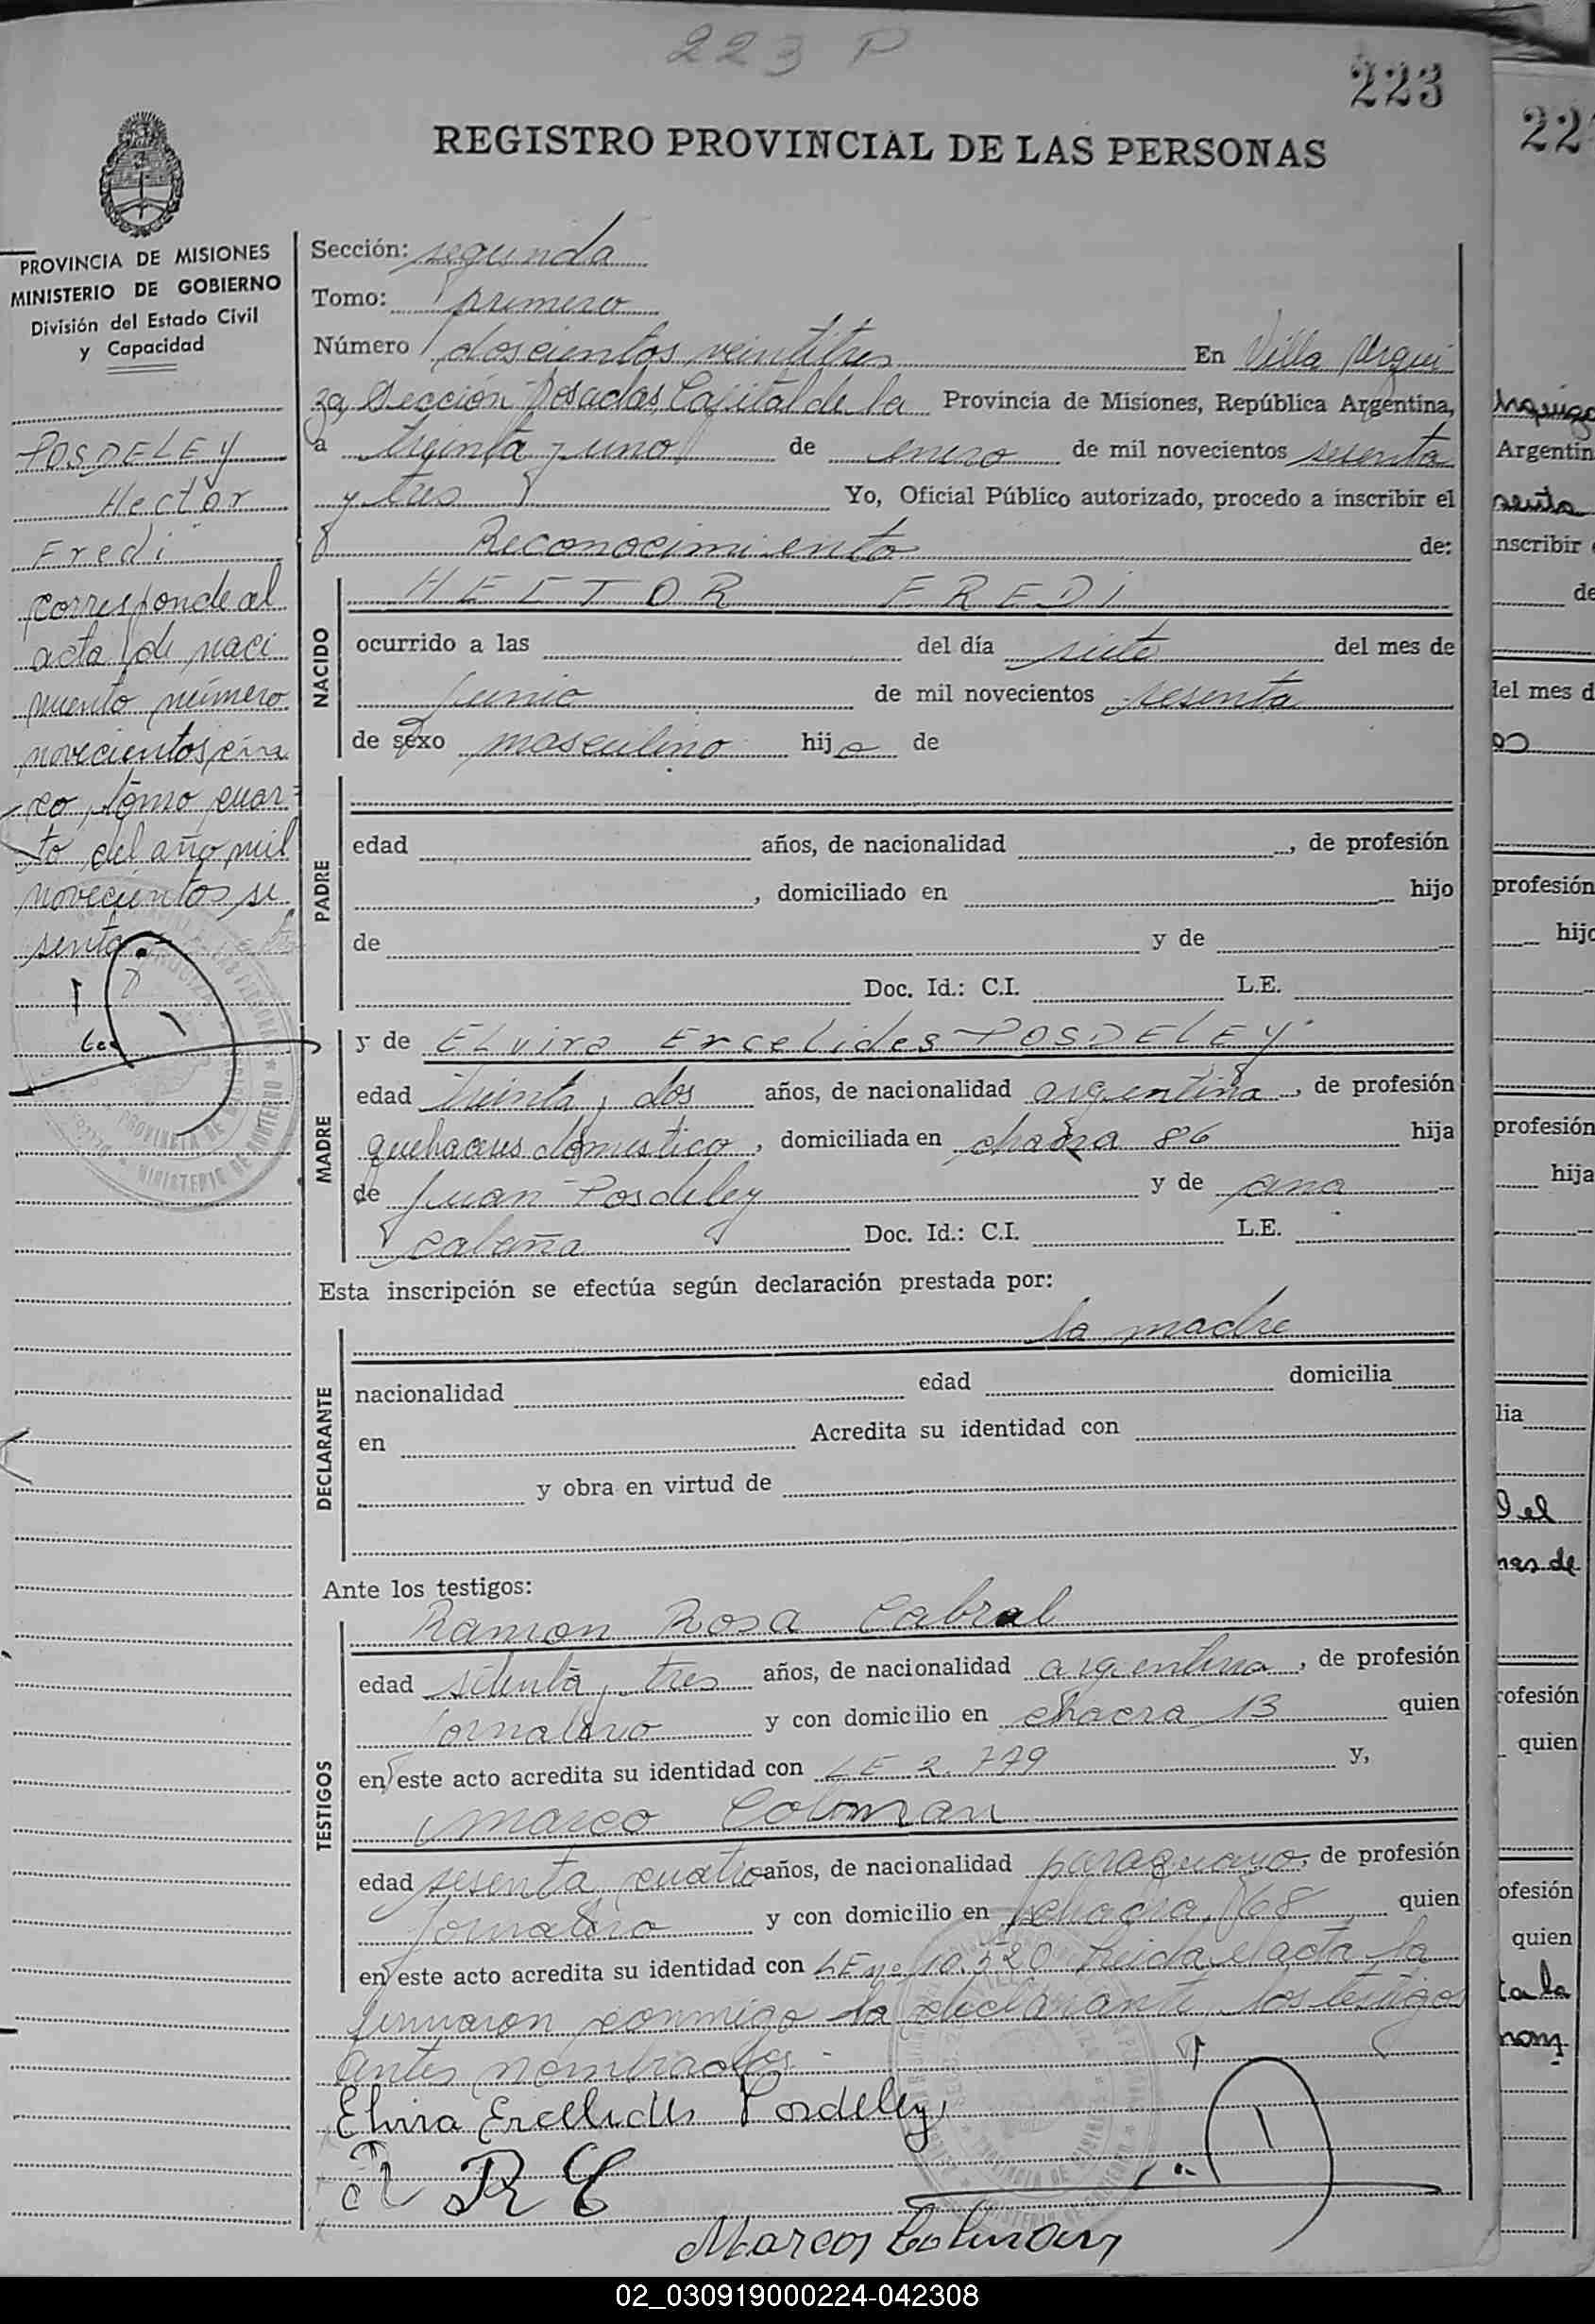 223 P
223
REGISTRO PROVINCIAL DE LAS PERSONAS
PROVINCIA DE MISIONES
MINISTERIO DE GOBIERNO
División del Estado Civil
y Capacidad
POSDELEY
Hector
Fredi
corresponde al
acta de naci
miento número
novecientos cin
co, tomo cuar-
to del año mil
novecientos se
senta
Sección: segunda
Tomo: primero
Número doscientos veintitres En Villa Urqui
za, Sección Posadas, Capital de la Provincia de Misiones, República Argentina,
a treinta y uno de enero de mil novecientos sesenta
y tres Yo, Oficial Público autorizado, procedo a inscribir el
Reconocimiento de:
NACIDO
HECTOR FREDI
ocurrido a las del día siete del mes de
junio de mil novecientos sesenta
de sexo masculino hijo de
PADRE
edad años, de nacionalidad , de profesión
, domiciliado en hijo
de y de
Doc. Id.: C.I. L.E.
MADRE
y de ELvira Ercelides POSDELEY
edad treinta y dos años, de nacionalidad argentina, de profesión
quehaceres domestico, domiciliada en chacra 86 hija
de Juan Posdeley y de ana
Doc. Id.: C.I. L.E.
Esta inscripción se efectúa según declaración prestada por:
la madre
DECLARANTE
nacionalidad edad domicilia
en Acredita su identidad con
y obra en virtud de
Ante los testigos:
TESTIGOS
Ramon Rosa Cabral
edad setenta y tres años, de nacionalidad argentina, de profesión
jornalero y con domicilio en chacra 13 quien
en este acto acredita su identidad con LE 2.779 y,
marco Colman
edad sesenta y cuatro años, de nacionalidad paraguayo, de profesión
jornalero y con domicilio en chacra 68 quien
en este acto acredita su identidad con LE nº 10.520 Leida el acta la
firmaron conmigo la declarante, los testigos
antes nombrados.-
Elvira Ercelides Posdeley
R R C
Marcos Colman
02_030919000224-042308